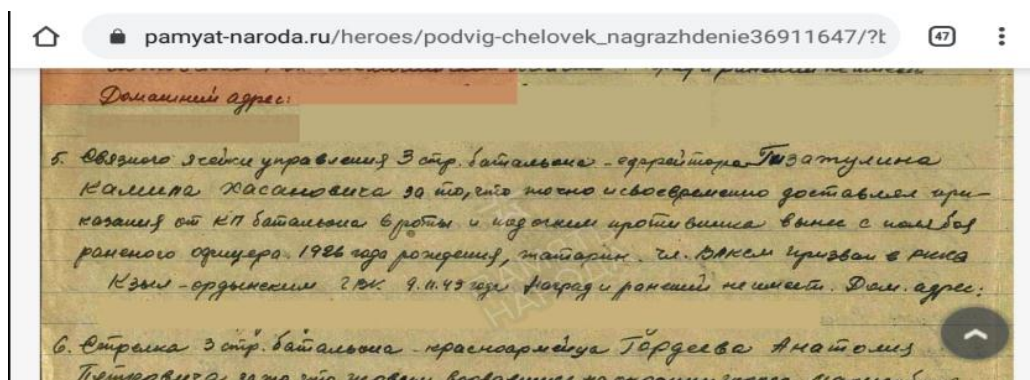 pamyat-naroda.ru/heroes/podvig-chelovek_nagrazhdenie36911647/?t
47
Домашний адрес:
5. Связного ячейки управления 3 стр. батальона - ефрейтора Гизатулина
Камила Хасановича за то, что точно и своевременно доставлял при-
казания от КП батальона в роты и под огнем противника вынес с поля боя
раненого офицера. 1926 года рождения, татарин. чл. ВЛКСМ призван в РККА
Кзыл-ордынским ГВК 9.11.43 года Наград и ранений не имеет. Дом. адрес:
ПАМЯТЬ
НАРОДА
6. Стрелка 3 стр. батальона - красноармейца Гордеева Анатолия